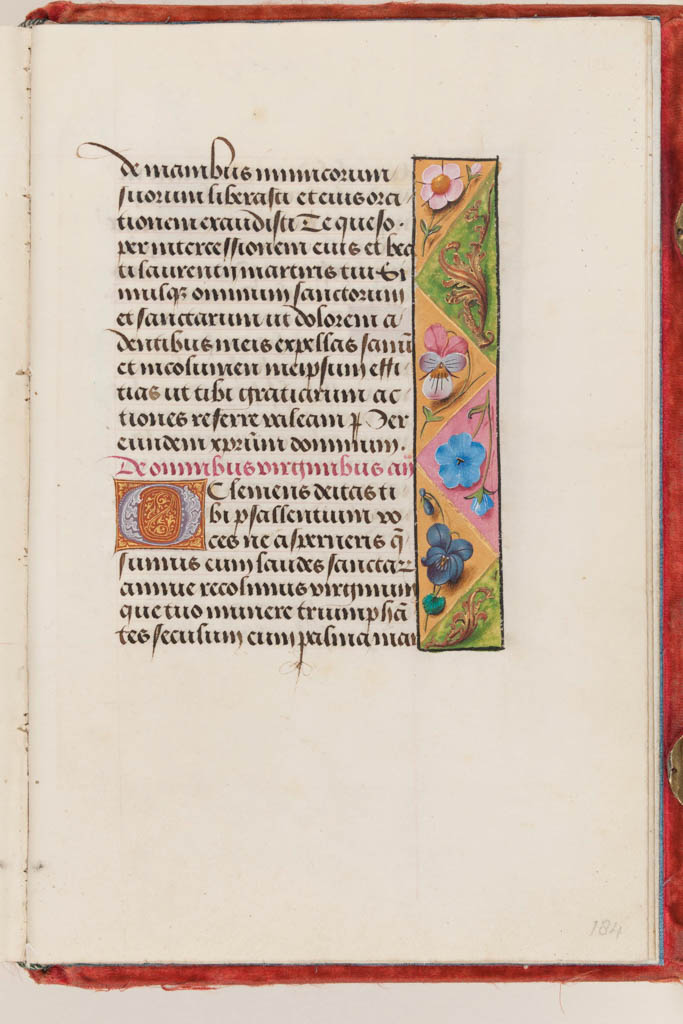 de manibus inimicorum
suorum liberasti et eius ora
tionem exaudisti Te queso ·
per intercessionem eius et bea
ti laurentij martiris tui Si
mulqz omnium sanctorum
et sanctarum ut dolorem a
dentibus meis expellas sanū
et incolumen meipsum effi
cias ut tibi gratiarum ac
tiones referre valeam ꝑ Per
eundem xp̄rūm dominum.
De omnibus virginibus añ
O Clemens deitas ti
bi psallentium vo
ces ne asperneris q̄
sumus cum laudes sancta
annue recolimus virginum
que tuo munere triumphā
tes seculum cum palma mar
184